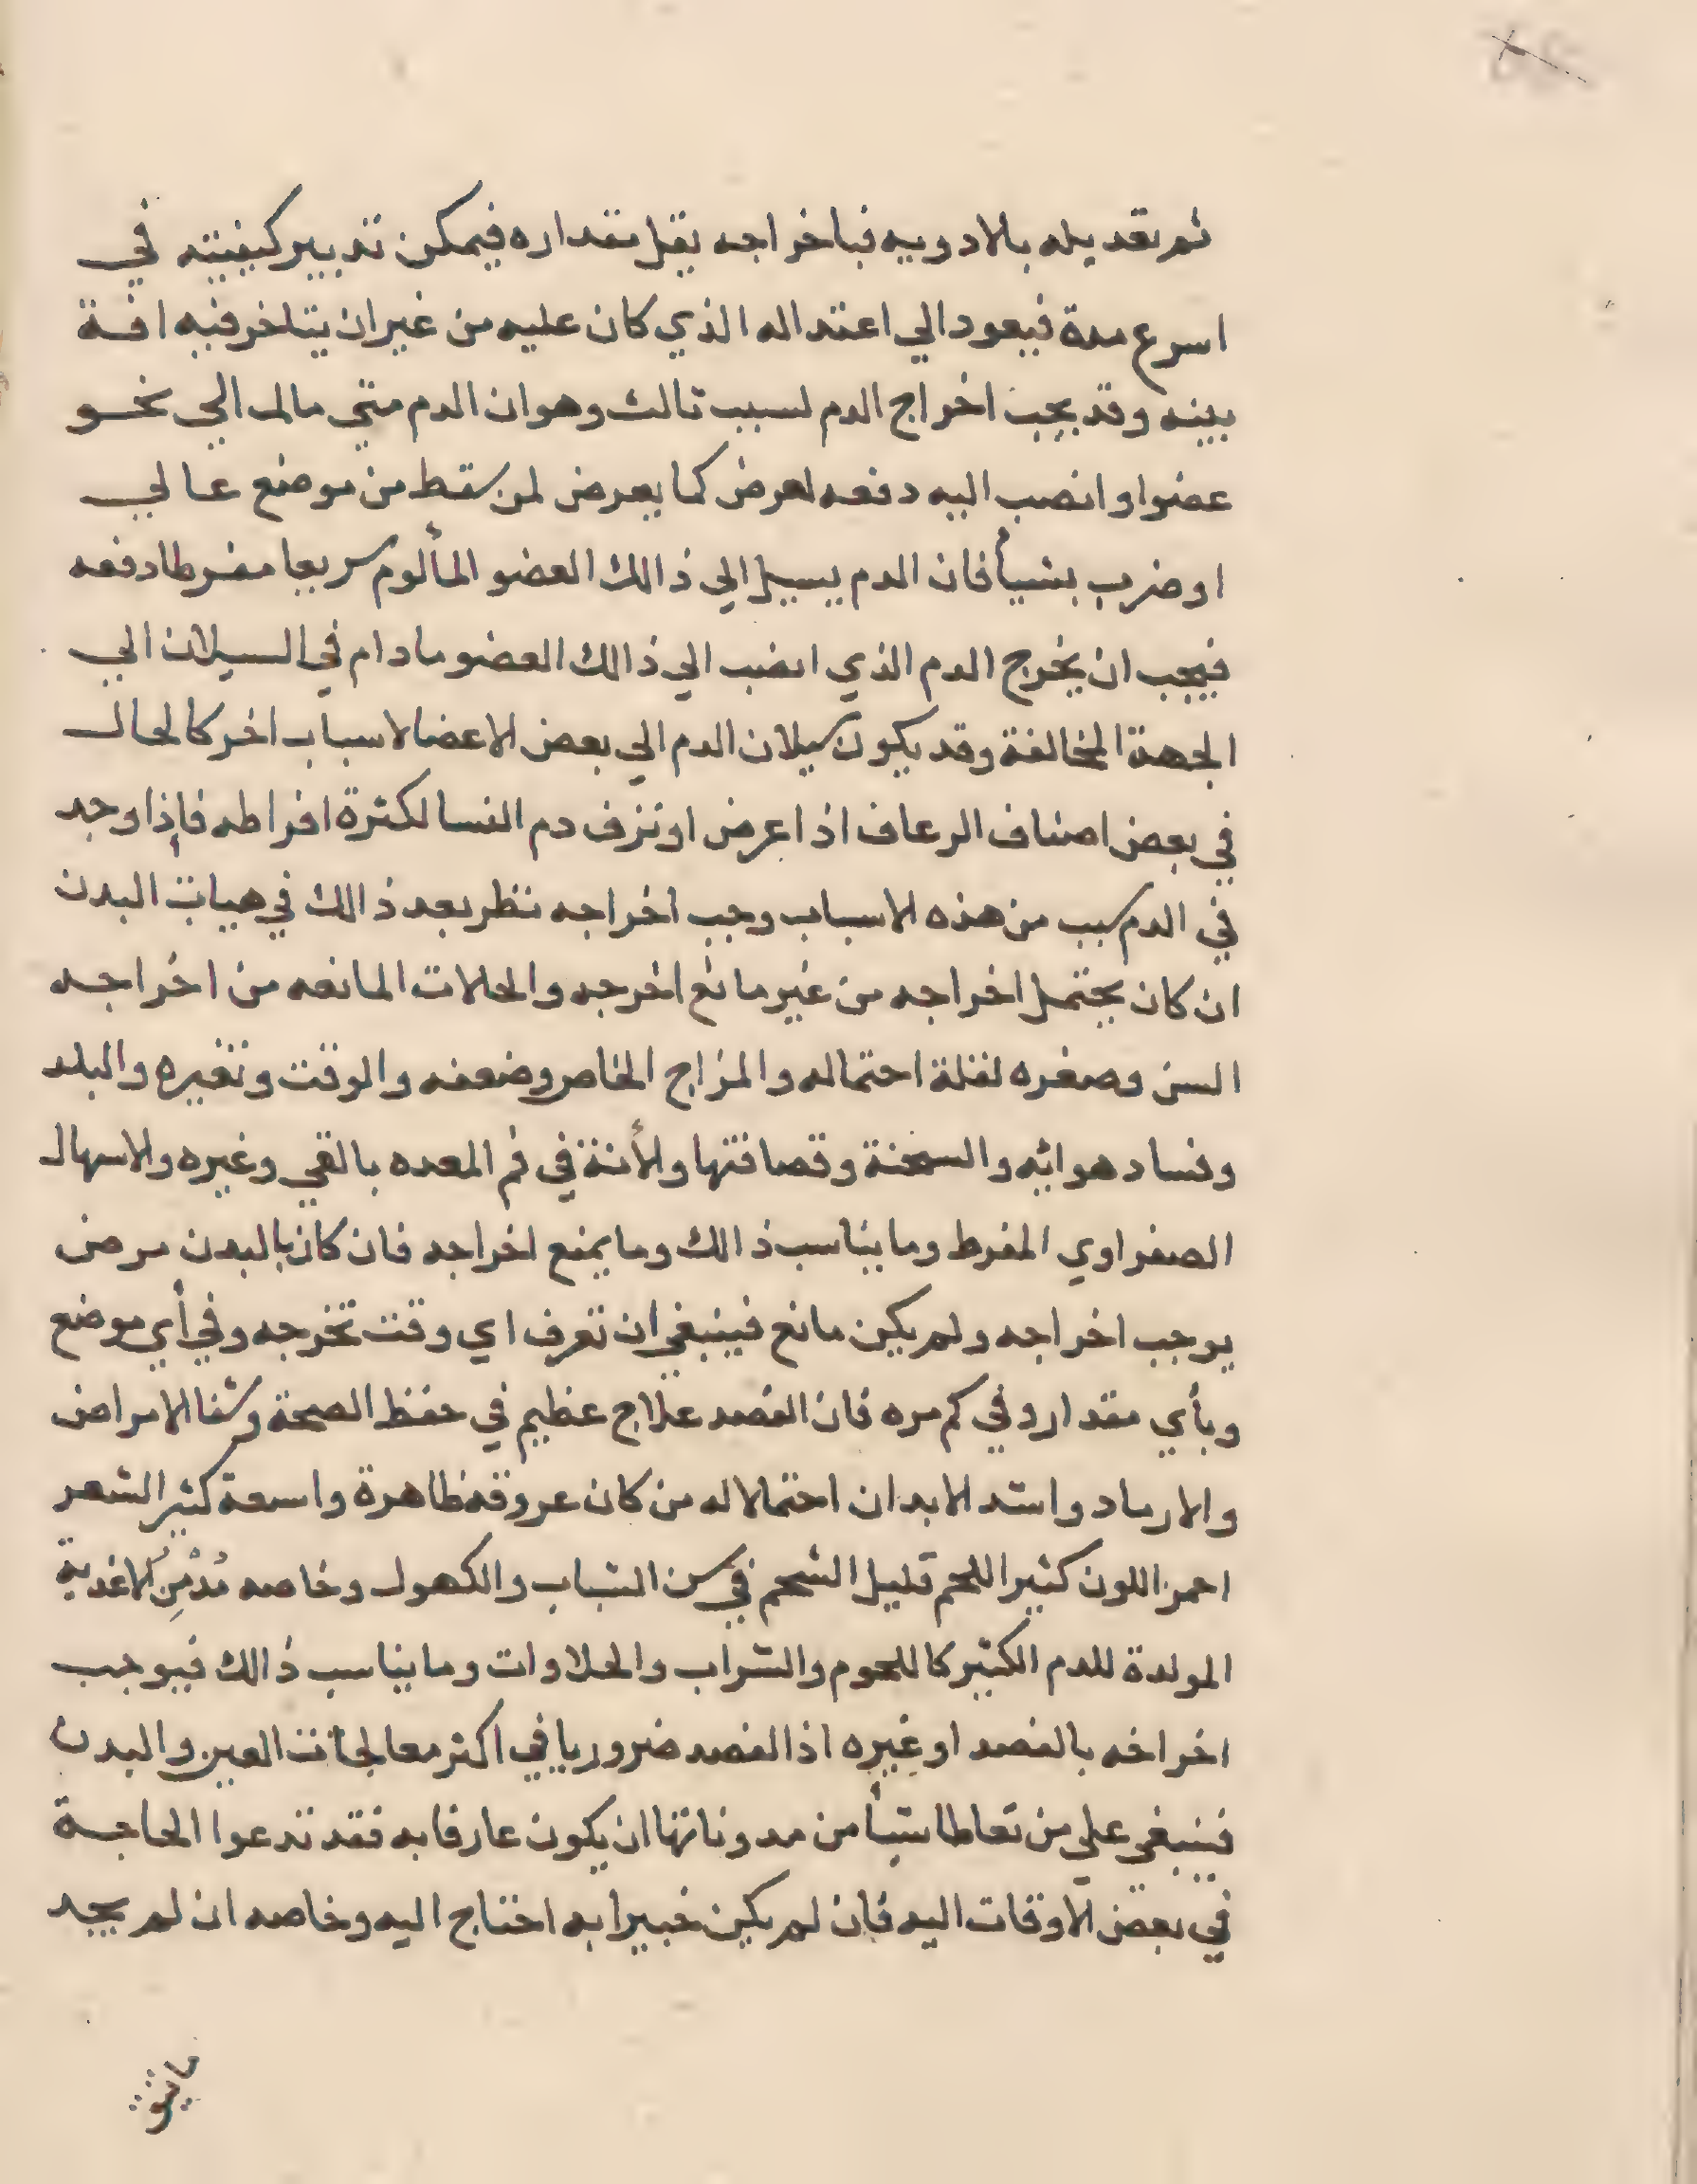 ثم تعديله بالادويه فباخراجه يقل مقداره فيمكن تدبير كيفيته في
اسرع مدة فيعود الي اعتداله الذي كان عليه من غير ان يتاخر فيه افة
بينه وقد يجب اخراج الدم لسبب تالث وهو ان الدم متي مال الي نحو
عضوا وانصب اليه دفعه لعرض كما يعرض لمن سقط من موضع عالي
او ضرب بشيأ فان الدم يسيل الي ذالك العضو المألوم سريعا مفرطا دفعه
فيجب ان يخرج الدم الذي انصب الي ذالك العضو ما دام في السيلان الي
الجهة المخالفة وقد يكون سيلان الدم الي بعض الاعضا لاسباب اخر كالحال
في بعض اصناف الرعاف اذا عرض او نزف دم النسا لكثرة افراطه فاذا وجد
في الدم سبب من هذه الاسباب وجب اخراجه تنظر بعد ذالك في هيات البدن
ان كان يحتمل اخراجه من غير مانع اخرجه والحلات المانعه من اخراجه
السن وصغره لقلة احتماله والمزاج الخاص وضعفه والوقت وتغيره والبلد
وفساد هوائه والسحنة وقصافتها ولأنة في فم المعده بالقي وغيره والاسهال
الصفراوي المفرط وما يناسب ذالك وما يمنع اخراجه فان كان بالبدن مرض
يوجب اخراجه ولم يكن مانع فينبغي ان تعرف اي وقت تخرجه وفي أي موضع
وبأي مقدار وفي كم مره فان الفصد علاج عظيم في حفظ الصحة وشفا الامراض
والارماد واشد الابدان احتمالا له من كان عروقه ظاهرة واسعة كثير الشعر
احمر اللون كثير اللحم قليل الشحم في سن الشباب والكهول وخاصه مُدْمِن الاغدية
المولدة للدم الكثير كاللحوم والشراب والحلاوات وما يناسب ذالك فيوجب
اخراخه بالفصد او غيره اذا الفصد ضروريا في اكثر معالجات العين والبدن
فينبغي علي من تعاطا شيأ من مدوناتها ان يكون عارفا به فقد تدعوا الحاجة
في بعض الاوقات اليه فان لم يكن خبيرا به احتاج اليه وخاصه ان لم يجد